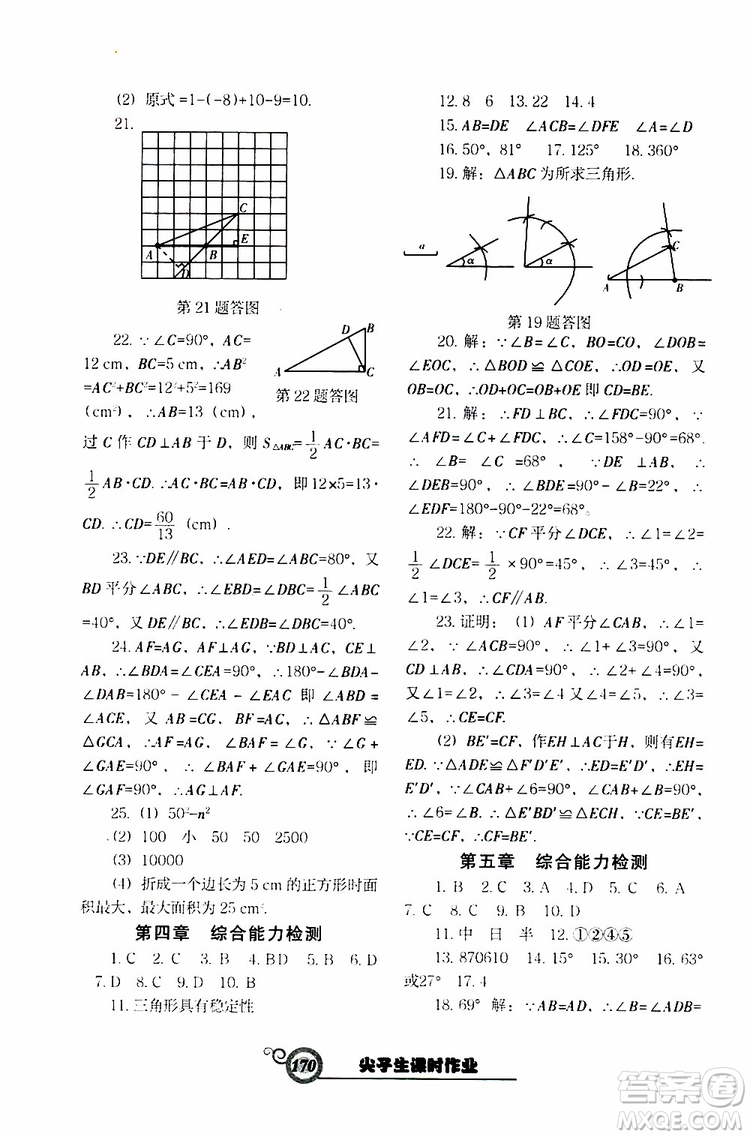 (2) 原式=1-(-8)+10-9=10.
21.
C
A B E
D
第21题答图
22. ∵∠C=90°, AC=
12 cm, BC=5 cm, ∴AB²
=AC²+BC²=12²+5²=169
(cm²), ∴AB=13 (cm),
D B
A C
第22题答图
过C作CD⊥AB于D, 则S△ABC=1/2 AC·BC=
1/2 AB·CD. ∴AC·BC=AB·CD, 即12×5=13·
CD. ∴CD=60/13 (cm).
23. ∵DE∥BC, ∴∠AED=∠ABC=80°, 又
BD平分∠ABC, ∴∠EBD=∠DBC=1/2∠ABC
=40°, 又∵DE∥BC, ∴∠EDB=∠DBC=40°.
24. AF=AG, AF⊥AG. ∵BD⊥AC, CE⊥
AB, ∴∠BDA=∠CEA=90°, ∴180°-∠BDA-
∠DAB=180°-∠CEA-∠EAC 即∠ABD=
∠ACE, 又 AB=CG, BF=AC, ∴△ABF≌
△GCA, ∴∠BAF=∠G, AF=AG. ∵∠G+
∠GAE=90°, ∴∠BAF+∠GAE=90°, 即
∠GAF=90°. ∴AG⊥AF
25. (1) 50²-n²
(2) 100 小 50 50 2500
(3) 10000
(4) 折成一个边长为5 cm的正方形时面
积最大, 最大面积为25 cm².
第四章 综合能力检测
1. C 2. C 3. B 4. BD 5. BD 6. AC
7. D 8. C 9. C 10. D
11. 三角形具有稳定性
12. 8 6 13. 22 14. 4
15. AB=DE ∠ACB=∠DFE ∠A=∠D
16. 50°, 81° 17. 125° 18. 360°
19. 解: △ABC为所求三角形.
a α α A B C
第19题答图
20. 解: ∵∠B=∠C, BO=CO, ∠DOB=
∠EOC, ∴△BOD≌△COE, ∴OD=OE. 又
OB=OC, ∴OD+OC=BO+OE即CD=BE.
21. 解: ∴FD⊥BC, ∴∠FDC=90°, ∵
∠AFD=∠C+∠FDC, ∴∠C=158°-90°=68°.
∴∠B=∠C=68°, ∵DE⊥AB, ∴
∠DEB=90°, ∴∠BDE=90°-∠B=22°, ∴
∠EDF=180°-90°-22°=68°.
22. 解: ∵CF平分∠DCE, ∴∠1=∠2=
1/2∠DCE=1/2×90°=45°, ∴∠3=45°, ∴
∠1=∠3, ∴CF∥AB.
23. 证明: (1) AF平分∠CAB, ∴∠1=
∠2, ∵∠ACB=90°, ∴∠1+∠5=90°. 又
CD⊥AB, ∴∠CDA=90°, ∴∠2+∠4=90°,
又∠1=∠2, ∴∠5=∠4 又∠4=∠5, ∴∠3=
∠5, ∴CE=CF.
(2) BE′=CF, 作EH⊥AC于H, 则有EH=
ED. ∵△ADE≌△A′D′E′, ∴ED=E′D′, ∴EH=
E′D′, ∵∠6+∠CAB=90°, ∠B+∠CAB=90°,
∴∠6=∠B, ∴△E′BD′≌△ECH, ∴CE=BE′,
∵CE=CF, ∴BE′=CF.
第五章 综合能力检测
1. B 2. C 3. C 4. D 5. C 6. A
7. C 8. C 9. B 10. D
11. 中 日 半 12. ①②④⑤
13. 870610 14. 4 15. 90° 16. 63°
或27° 17. 4
18. 69° 解: ∵AB=AD, ∴∠B=∠ADB=
170 尖子生课时作业
答案圈
MXQE.COM